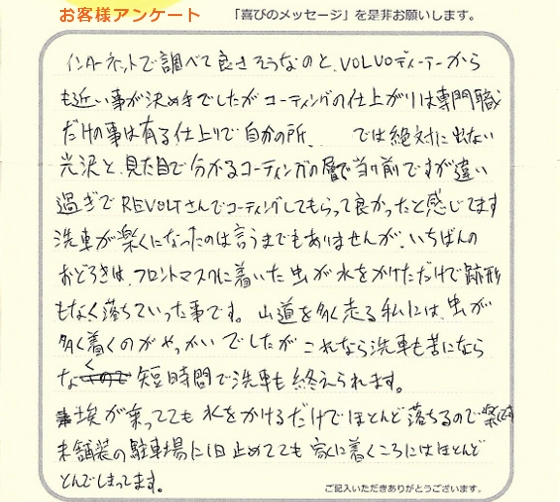 お客様アンケート 「喜びのメッセージ」を是非お願いします。
インターネットで調べて良さそうなのと、VOLVOディーラーから
も近い事が決め手でしたがコーティングの仕上がりは専門職
だけの事は有る仕上りで自分の所、 では絶対に出ない
光沢と、見た目で分かるコーティングの層で当り前ですが違い
過ぎでREVOLTさんでコーティングしてもらって良かったと感じてます
洗車が楽になったのは言うまでもありませんが、いちばんの
おどろきは、フロントマスクに着いた虫が水をかけただけで跡形
もなく落ちていった事です。山道を多く走る私には、虫が
多く着くのがやっかいでしたがこれなら洗車も苦になら
なく短時間で洗車も終えられます。
埃が乗ってても水をかけるだけでほとんど落ちるので楽です
未舗装の駐車場に1日止めてても家に着くころにはほとんど
とんでしまってます。
ご記入いただきありがとうございます。